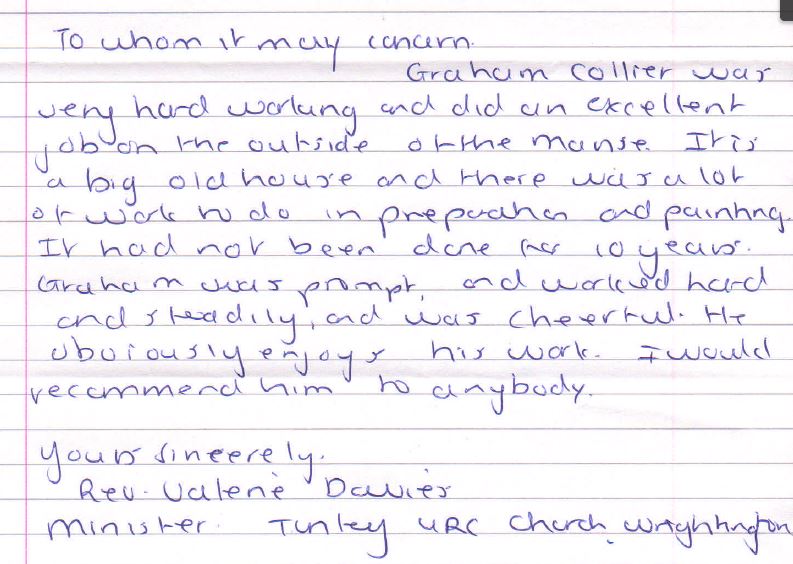 To whom it may concern.
Graham Collier was
very hard working and did an excellent
job on the outside of the manse. It is
a big old house and there was a lot
of work to do in preparation and painting.
It had not been done for 10 years.
Graham was prompt, and worked hard
and steadily, and was cheerful. He
obviously enjoys his work. I would
recommend him to anybody.
Yours sincerely.
Rev. Valerie Davies
Minister. Tunley URC Church, Wrightington